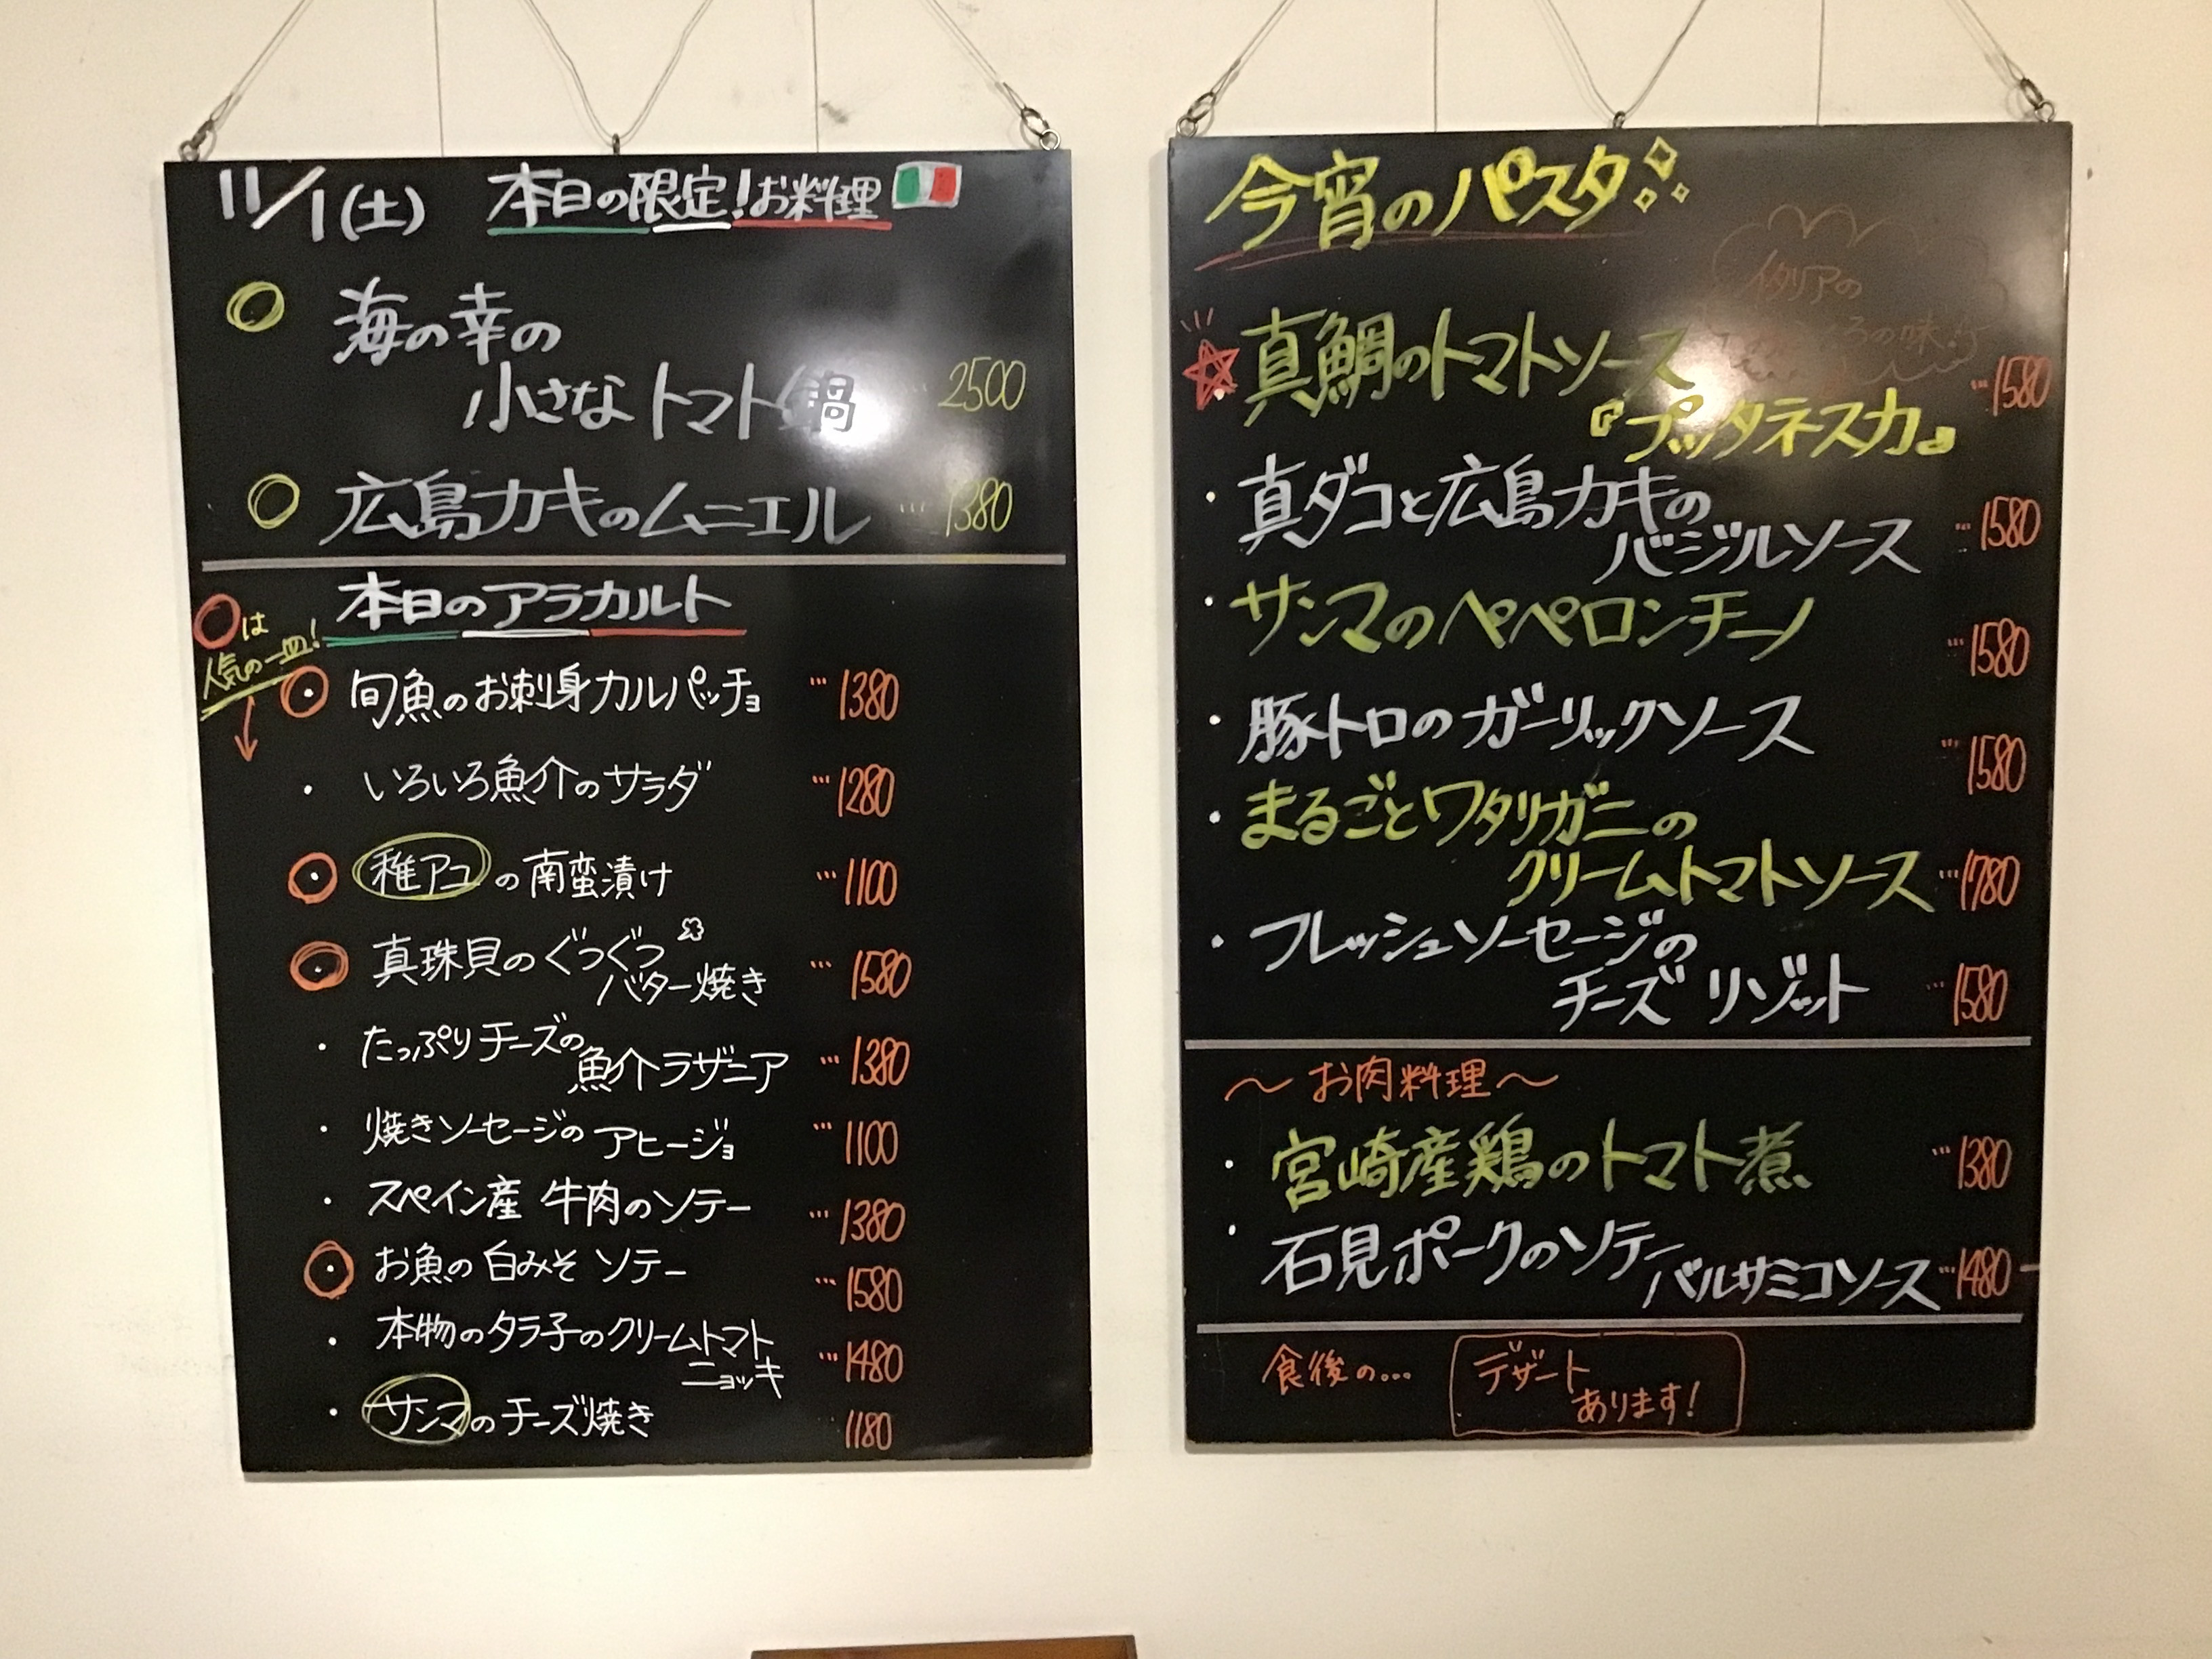 11/1(土) 本日の限定!お料理
海の幸の
小さなトマト鍋 … 2500
広島カキのムニエル … 1380
本日のアラカルト
○は
人気の一皿!
旬魚のお刺身カルパッチョ … 1380
いろいろ魚介のサラダ … 1280
稚アユの南蛮漬け … 1100
真珠貝のぐつぐつ
バター焼き … 1580
たっぷりチーズの
魚介ラザニア … 1380
焼きソーセージのアヒージョ … 1100
スペイン産 牛肉のソテー … 1380
お魚の白みそソテー … 1580
本物のタラ子のクリームトマト
ニョッキ … 1480
サンマのチーズ焼き 1180
今宵のパスタ
イタリアの
ろの味!
真鯛のトマトソース … 1580
『プッタネスカ』
真ダコと広島カキの
バジルソース … 1580
サンマのペペロンチーノ … 1580
豚トロのガーリックソース … 1580
まるごとワタリガニの
クリームトマトソース … 1780
フレッシュソーセージの
チーズリゾット … 1580
〜お肉料理〜
宮崎産鶏のトマト煮 … 1380
石見ポークのソテー
バルサミコソース … 1480
食後の…
デザート
あります!